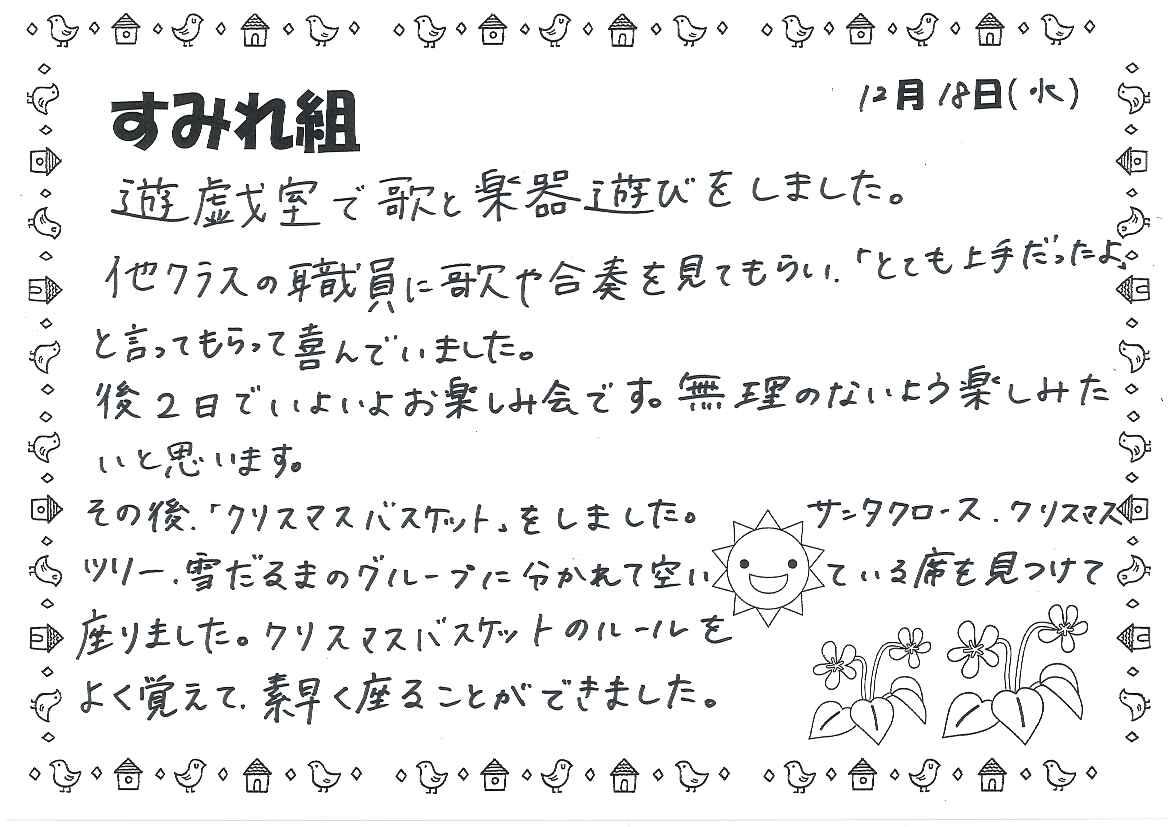 すみれ組
12月18日(水)
遊戯室で歌と楽器遊びをしました。
他クラスの職員に歌や合奏を見てもらい、「とても上手だったよ」
と言ってもらって喜んでいました。
後2日でいよいよお楽しみ会です。無理のないよう楽しみた
いと思います。
その後、「クリスマスバスケット」をしました。 サンタクロース、クリスマス
ツリー、雪だるまのグループに分かれて空いている席を見つけて
座りました。クリスマスバスケットのルールを
よく覚えて、素早く座ることができました。